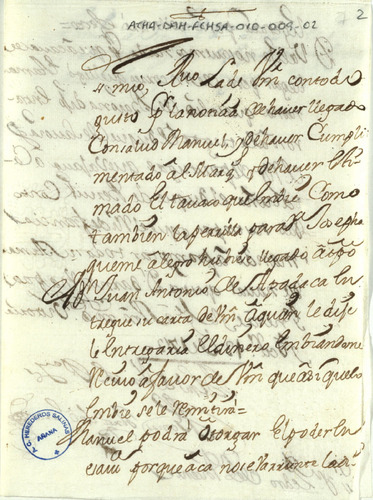 ACHA-DAH-FCHSA-010-009-02
2
mio, Rvo la de Vm con todo
gusto pr la noticia de haver llegado
Con salud Manuel, y de haver Cumpli
mentado al Marq y de haver esti
mado El tavaco que embie Como
tambien la para Josepha
que me alegro hubiese llegado a tpo
A Juan Antonio de Azadaca en
tregue su carta de Vm a quien le dije
le entregaria El dinero embiandome
Recivo a favor de Vm que aqui
embie se le Remitira=
Manuel podra otorgar El poder en
porque aca no
A.G. HEREDEROS SALINAS
ARAÑA